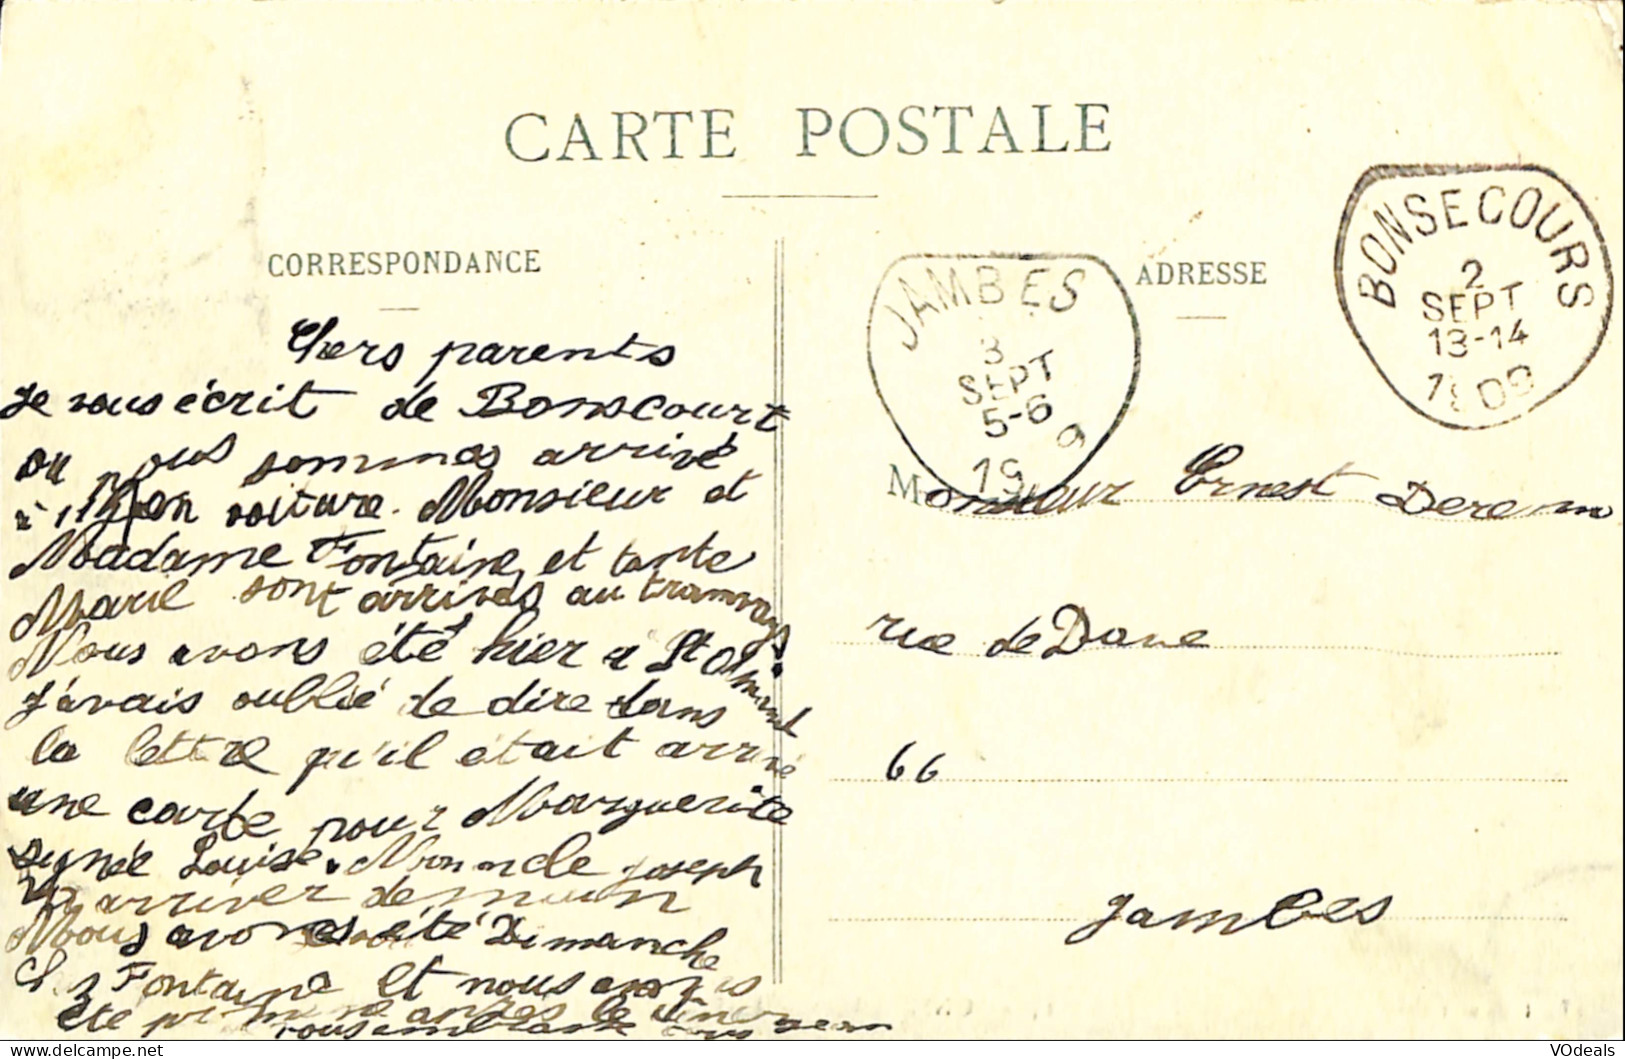 CARTE POSTALE
CORRESPONDANCE
ADRESSE
BONSECOURS
2
SEPT
13-14
JAMBES
3
SEPT
5-6
Chers parents
je vous écrit de Bonscourt
ou nous sommes arrivé
en voiture. Monsieur et
Madame Fontaine et tante
Marie sont arrivés au tramway.
Nous avons été hier a St Amand
J'avais oublié de dire dans
la lettre qu'il était arrivé
une carte pour Marguerite
signée Louise. Mononcle joseph
arriver demain
Nous avons été Dimanche
chez Fontaine et nous avons
été promene apres le diner
vous embrasse tous jean
Monsieur Ernest Derenne
rue de Dave
66
jambes
VOdeals